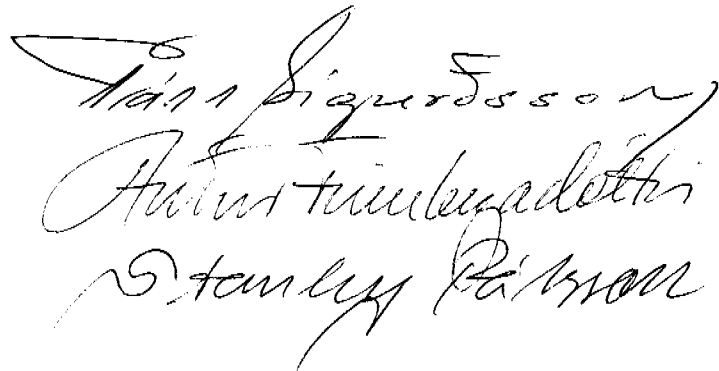 Þráinn Sigurðsson
Auður Finnbogadóttir
Stanley Pálsson